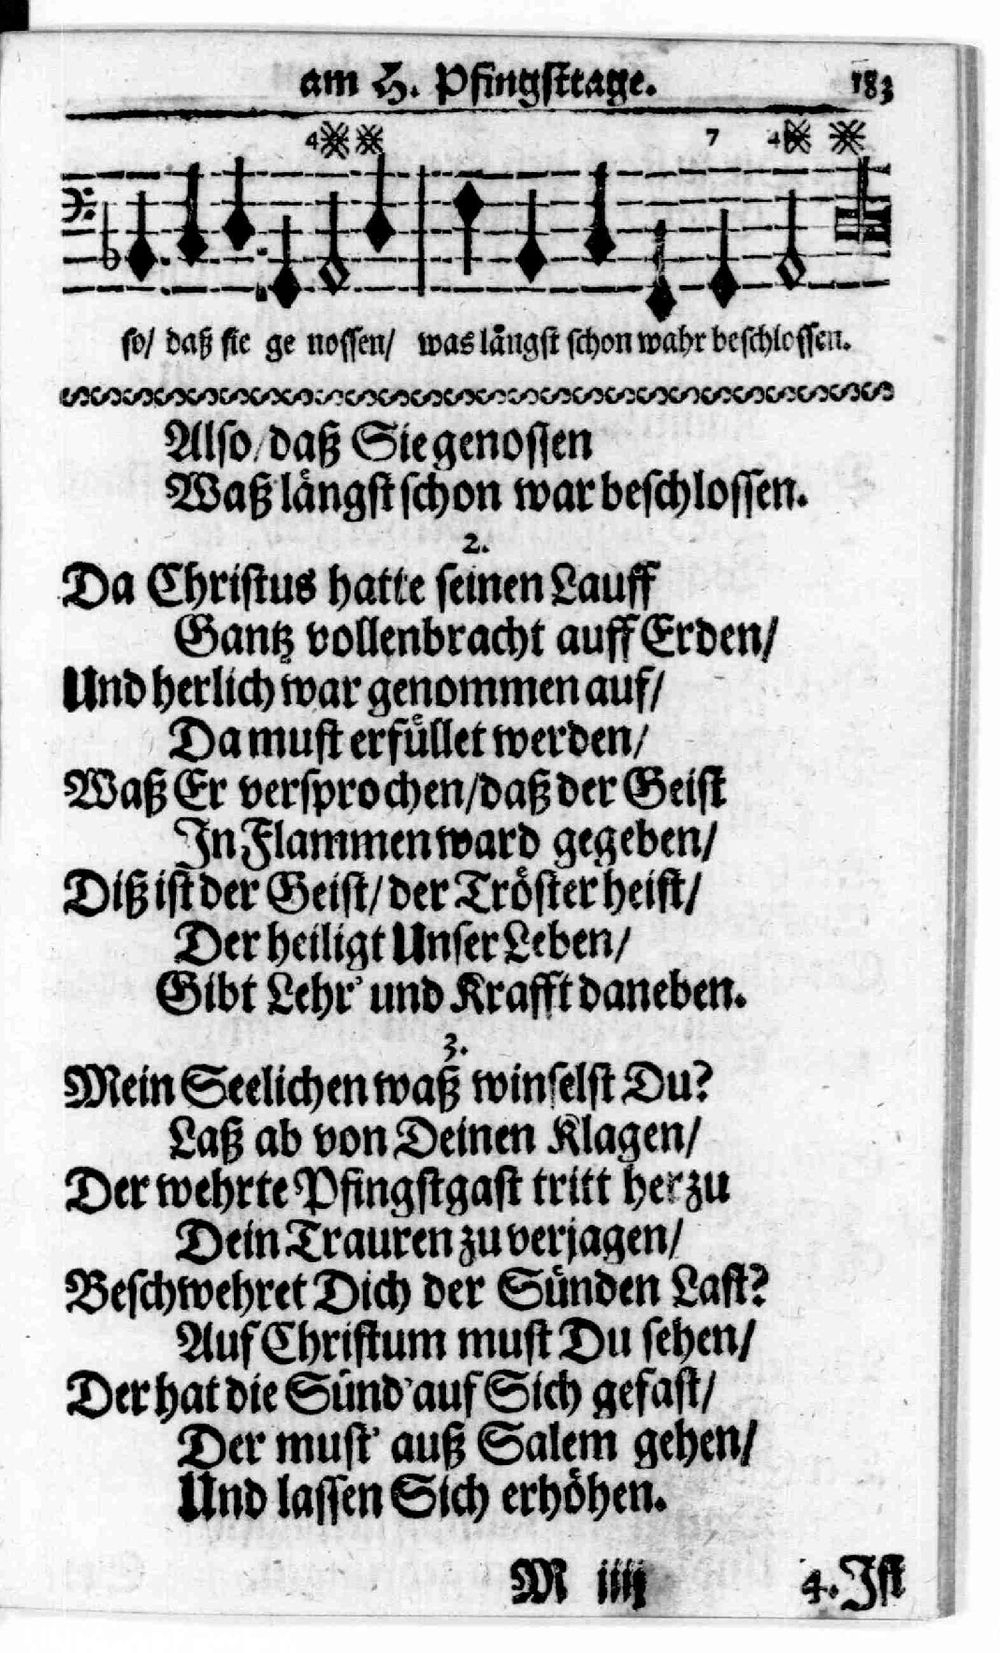 am H. Pfingsttage. 183
4 7 4
so/ daß sie ge nossen/ was längst schon wahr beschlossen.
Also/daß Sie genossen
Waß längst schon war beschlossen.
2.
Da Christus hatte seinen Lauff
Gantz vollenbracht auff Erden/
Und herlich war genommen auf/
Da must erfüllet werden/
Waß Er versprochen/daß der Geist
In Flammen ward gegeben/
Diß ist der Geist/ der Tröster heist/
Der heiligt Unser Leben/
Gibt Lehr' und Krafft daneben.
3.
Mein Seelichen waß winselst Du?
Laß ab von Deinen Klagen/
Der wehrte Pfingstgast tritt herzu
Dein Trauren zu verjagen/
Beschwehret Dich der Sünden Last?
Auf Christum must Du sehen/
Der hat die Sünd' auf Sich gefast/
Der must' auß Salem gehen/
Und lassen Sich erhöhen.
M iiij 4. Ist